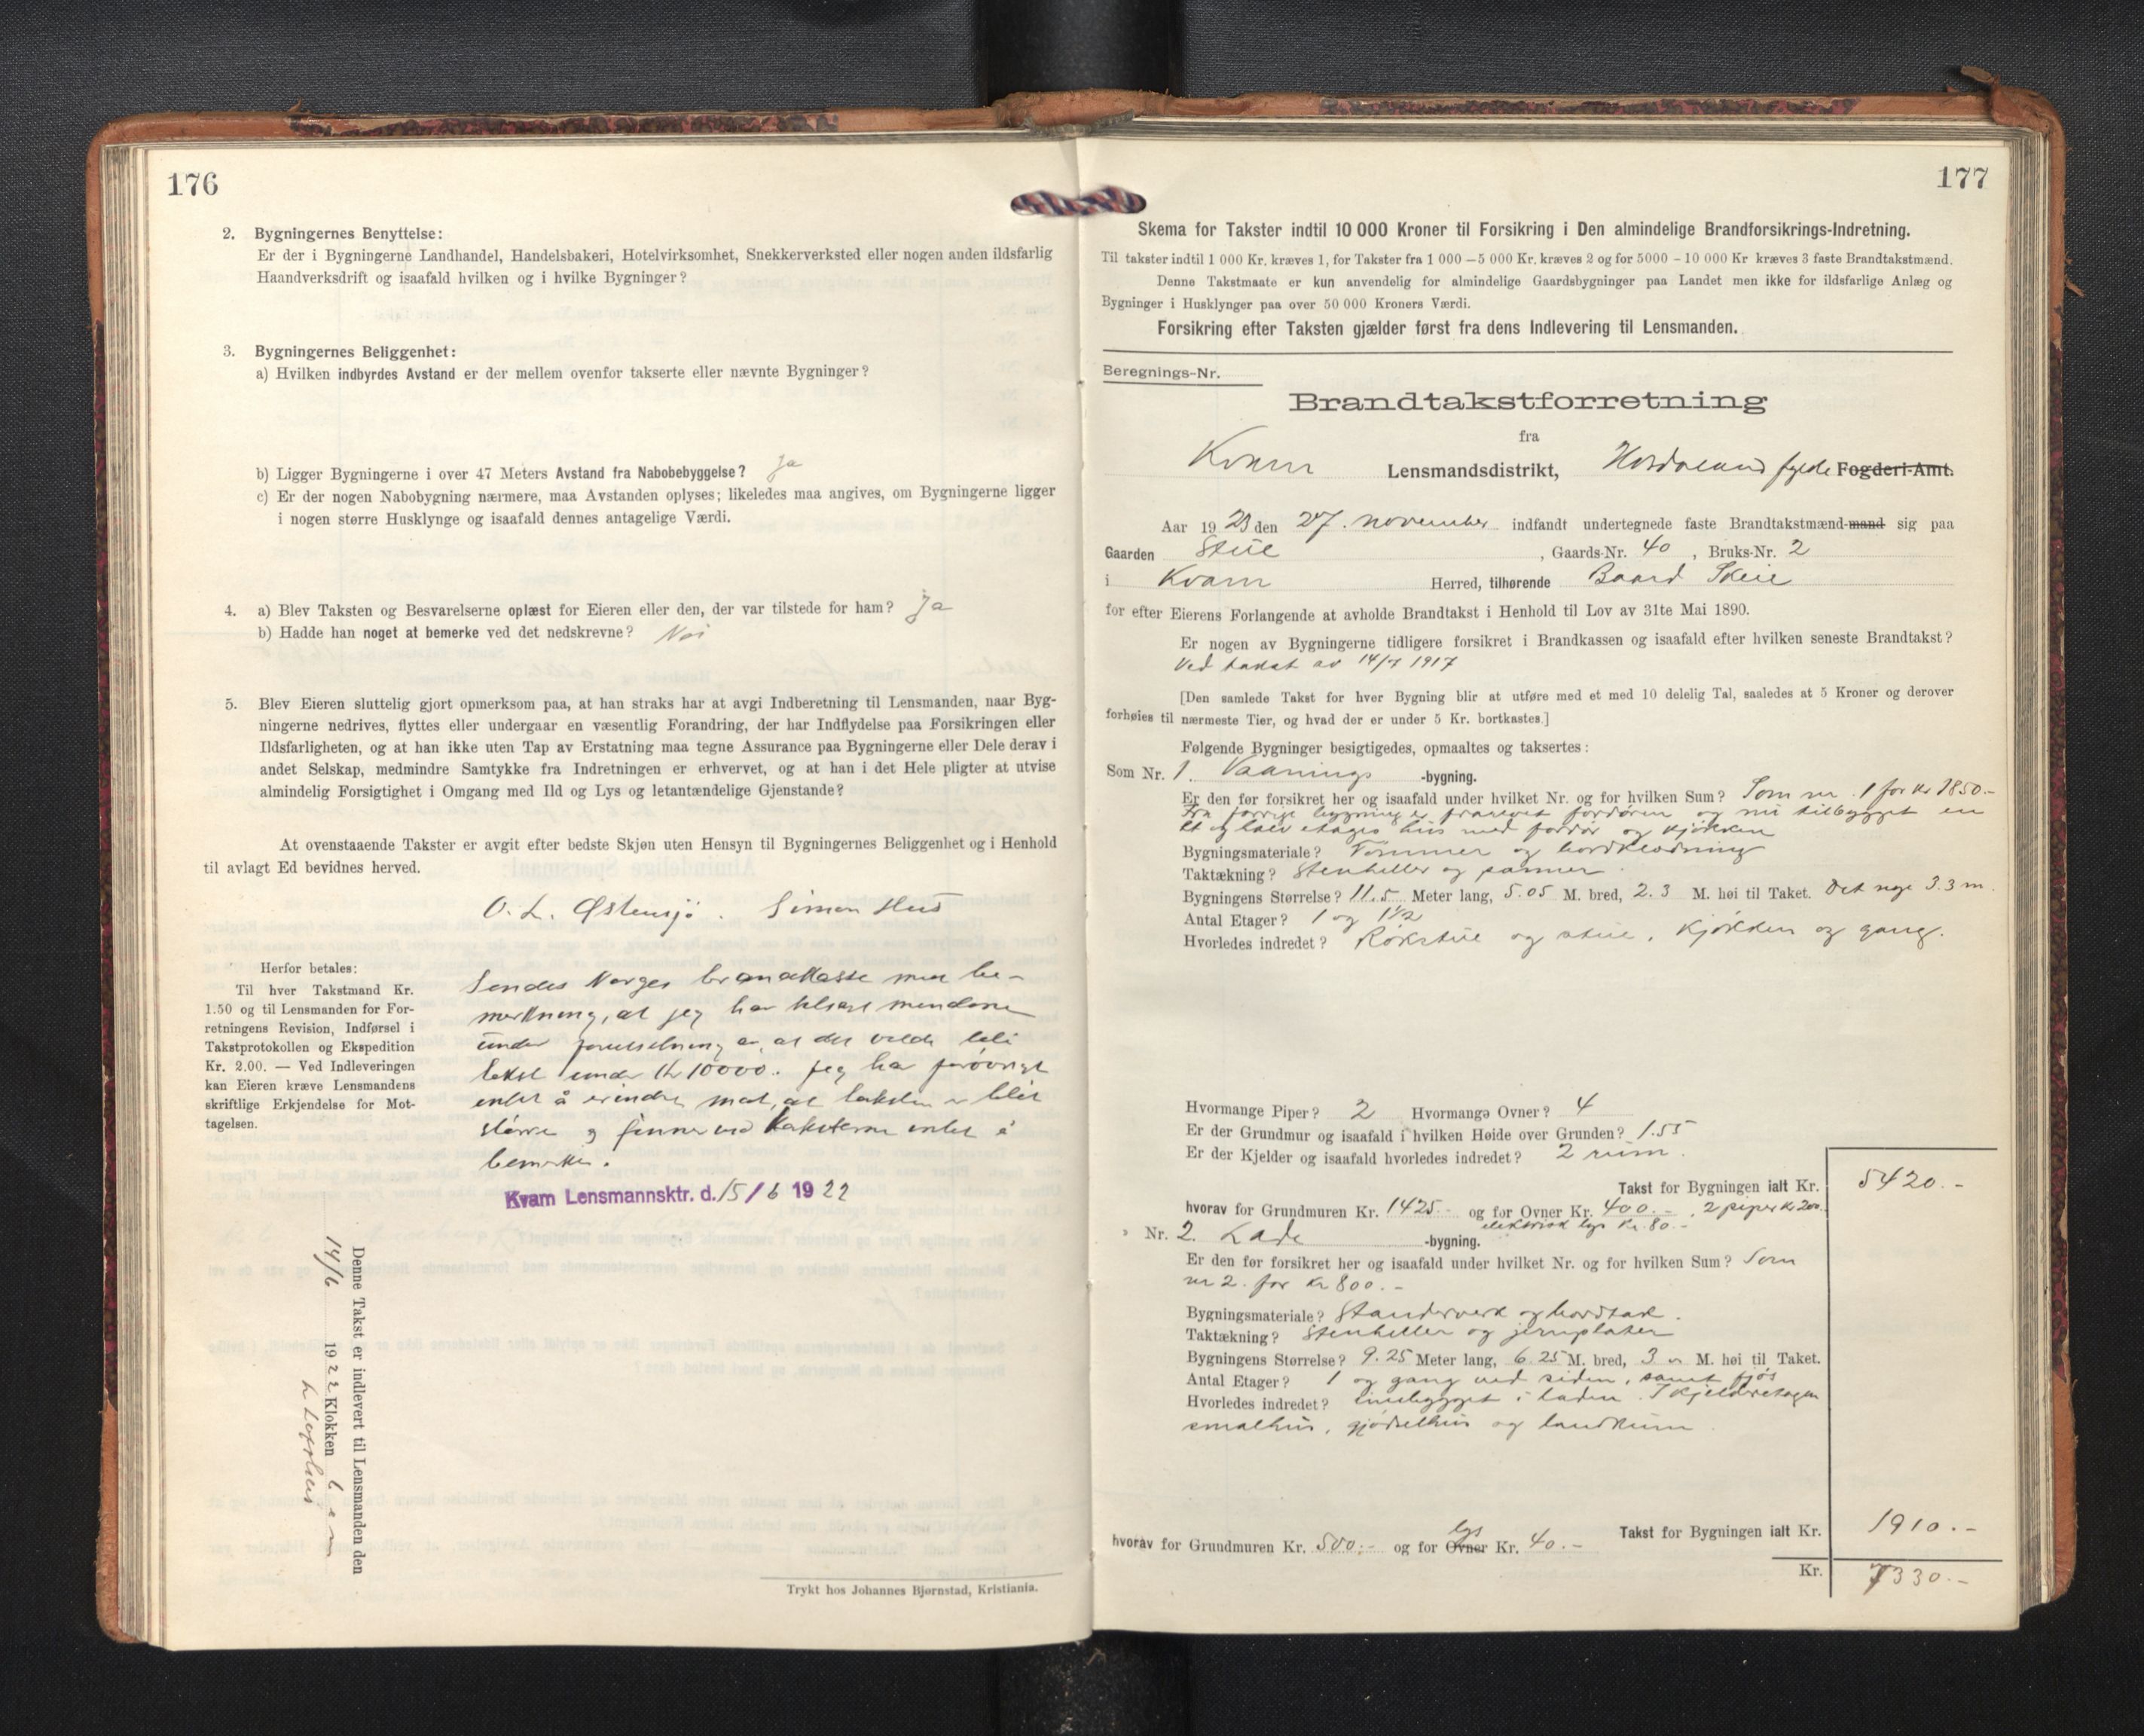 176
2. Bygningernes Benyttelse:
Er der i Bygningerne Landhandel, Handelsbakeri, Hotelvirksomhet, Snekkerverksted eller nogen anden ildsfarlig
Haandverksdrift og isaafald hvilken og i hvilke Bygninger?
3. Bygningernes Beliggenhet:
a) Hvilken indbyrdes Avstand er der mellem ovenfor takserte eller nævnte Bygninger?
b) Ligger Bygningerne i over 47 Meters Avstand fra Nabobebyggelse? Ja
c) Er der nogen Nabobygning nærmere, maa Avstanden oplyses; likeledes maa angives, om Bygningerne ligger
i nogen større Husklynge og isaafald dennes antagelige Værdi.
4. a) Blev Taksten og Besvarelserne oplæst for Eieren eller den, der var tilstede for ham? Ja
b) Hadde han noget at bemerke ved det nedskrevne? Nei
5. Blev Eieren sluttelig gjort opmerksom paa, at han straks har at avgi Indberetning til Lensmanden, naar Byg-
ningerne nedrives, flyttes eller undergaar en væsentlig Forandring, der har Indflydelse paa Forsikringen eller
Ildsfarligheten, og at han ikke uten Tap av Erstatning maa tegne Assurance paa Bygningerne eller Dele derav i
andet Selskap, medmindre Samtykke fra Indretningen er erhvervet, og at han i det Hele pligter at utvise
almindelig Forsigtighet i Omgang med Ild og Lys og letantændelige Gjenstande?
At ovenstaaende Takster er avgit efter bedste Skjøn uten Hensyn til Bygningernes Beliggenhet og i Henhold
til avlagt Ed bevidnes herved.
O. L. Østensjø. Simon Hus
Herfor betales:
Til hver Takstmand Kr.
1.50 og til Lensmanden for For-
retningens Revision, Indførsel i
Takstprotokollen og Ekspedition
Kr. 2.00. — Ved Indleveringen
kan Eieren kræve Lensmandens
skriftlige Erkjendelse for Mot-
tagelsen.
Sendes Norges brandkasse med be-
merkning, at jeg har tilsagt mændene
under forutsetning av, at det vilde bli
takst under Kr 10000. Jeg har forøvrigt
intet å erindre mot, at taksten er blit
større og finner ved taksterne intet å
bemerke.
Kvam Lensmannsktr. d. 15/6 1922
Denne Takst er indlevert til Lensmanden den
14/6 1922 Klokken 6 em
Trykt hos Johannes Bjørnstad, Kristiania.
177
Skema for Takster indtil 10 000 Kroner til Forsikring i Den almindelige Brandforsikrings-Indretning.
Til takster indtil 1 000 Kr. kræves 1, for Takster fra 1 000 — 5 000 Kr. kræves 2 og for 5000 - 10 000 Kr kræves 3 faste Brandtakstmænd.
Denne Takstmaate er kun anvendelig for almindelige Gaardsbygninger paa Landet men ikke for ildsfarlige Anlæg og
Bygninger i Husklynger paa over 50 000 Kroners Værdi.
Forsikring efter Taksten gjælder først fra dens Indlevering til Lensmanden.
Beregnings-Nr.
Brandtakstforretning
fra
Kvam Lensmandsdistrikt, Hordaland fylde Fogderi-Amt.
Aar 1923 den 27. november indfandt undertegnede faste Brandtakstmænd-mand sig paa
Gaarden Skeie, Gaards-Nr. 40, Bruks-Nr. 2
i Kvam Herred, tilhørende Baard Skeie
for efter Eierens Forlangende at avholde Brandtakst i Henhold til Lov av 31te Mai 1890.
Er nogen av Bygningerne tidligere forsikret i Brandkassen og isaafald efter hvilken seneste Brandtakst?
Ved takst av 14/7 1917
[Den samlede Takst for hver Bygning blir at utføre med et med 10 delelig Tal, saaledes at 5 Kroner og derover
forhøies til nærmeste Tier, og hvad der er under 5 Kr. bortkastes.]
Følgende Bygninger besigtigedes, opmaaltes og taksertes:
Som Nr. 1. Vaanings -bygning.
Er den før forsikret her og isaafald under hvilket Nr. og for hvilken Sum? Som nr. 1 for kr 1850.-
Fra forrige bygning er frarevet fordøren og nu tilbygget en
et og halv etages hus med fordør og kjøkken
Bygningsmateriale? Tømmer og bordklædning
Taktækning? Stenheller og panner
Bygningens Størrelse? 11.5 Meter lang, 5.05 M. bred, 2.3 M. høi til Taket. Det nye 3.3 m.
Antal Etager? 1 og 1½
Hvorledes indredet? Røkstue og stue, kjøkken og gang.
Hvormange Piper? 2 Hvormange Ovner? 4
Er der Grundmur og isaafald i hvilken Høide over Grunden? 1.55
Er der Kjelder og isaafald hvorledes indredet? 2 rum.
Takst for Bygningen ialt Kr. 5420.-
hvorav for Grundmuren Kr. 1425.- og for Ovner Kr. 400.-, 2 piper kr 200.
elektrisk lys Kr. 80.-
Nr. 2. Lade -bygning.
Er den før forsikret her og isaafald under hvilket Nr. og for hvilken Sum? Som
nr 2. for kr 800.-
Bygningsmateriale? Standerverk og bordtak.
Taktækning? Stenheller og jernplater
Bygningens Størrelse? 9.25 Meter lang, 6.25 M. bred, 3 M. høi til Taket.
Antal Etager? 1 og gang ved siden, samt fjøs
Hvorledes indredet? innebygget i laden. I kjelderetagen
smalhus, gjødselhus og landkum
Takst for Bygningen ialt Kr. 1910.-
hvorav for Grundmuren Kr. 500.- og for Ovner lys Kr. 40.-
Kr. 7330.-